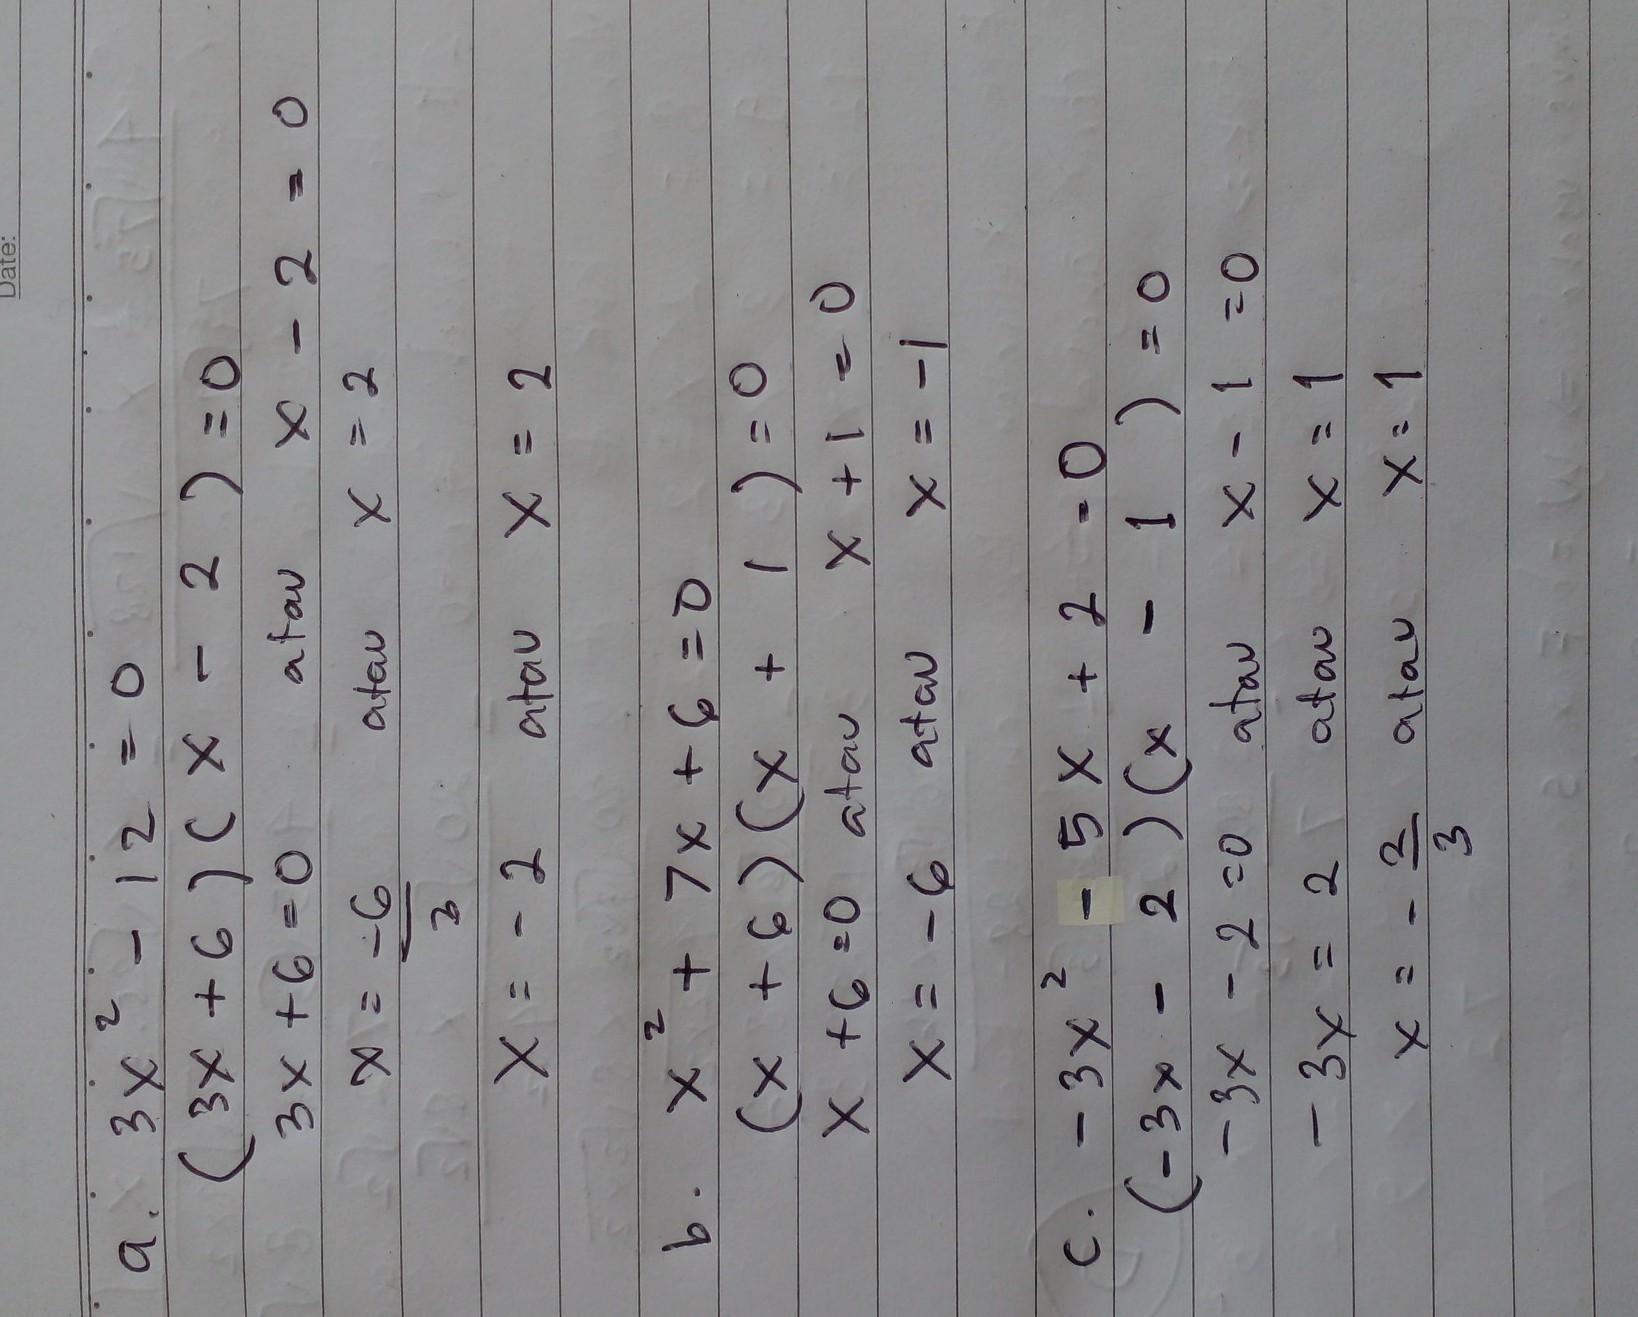 Date:
a. 3x² - 12 = 0
(3x + 6)(x - 2) = 0
3x + 6 = 0 atau x - 2 = 0
x = -6/3 atau x = 2
x = -2 atau x = 2
b. x² + 7x + 6 = 0
(x + 6)(x + 1) = 0
x + 6 = 0 atau x + 1 = 0
x = -6 atau x = -1
c. -3x² - 5x + 2 = 0
(-3x - 2)(x - 1) = 0
-3x - 2 = 0 atau x - 1 = 0
-3x = 2 atau x = 1
x = -2/3 atau x = 1